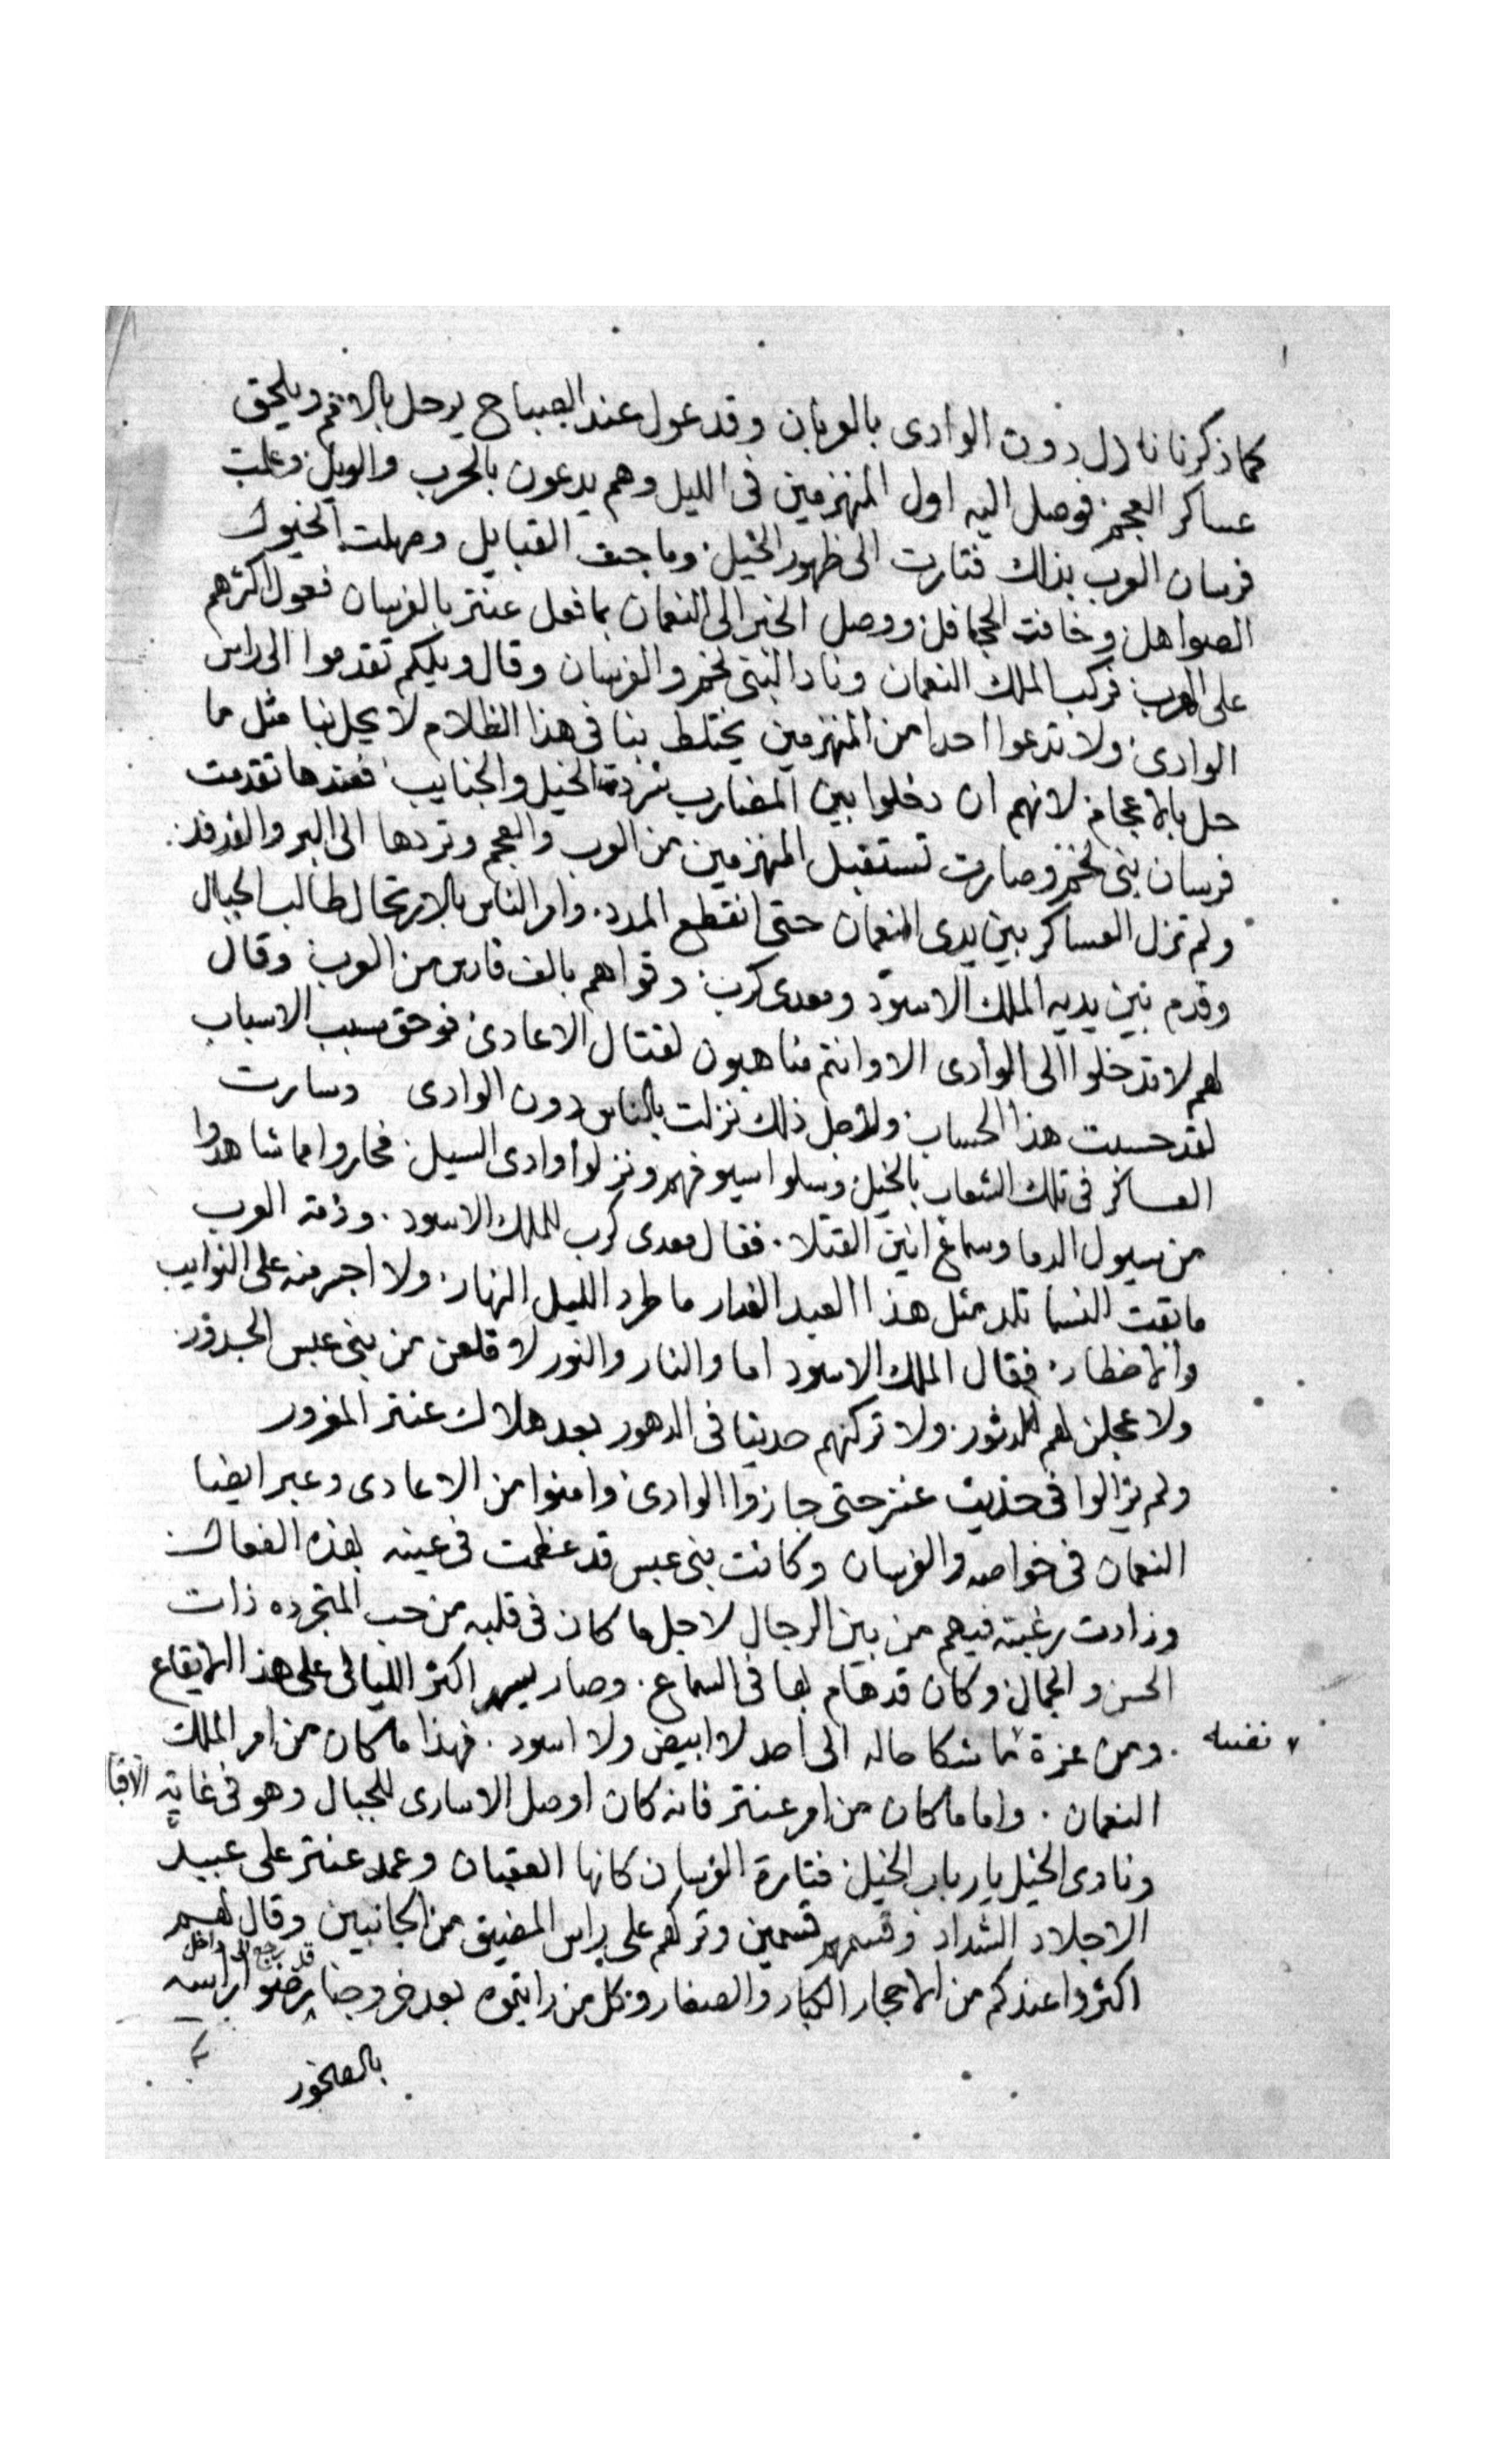 كما ذكرنا نازل دون الوادى بالعربان وقد عول عند الصباح يرحل بالامم ويلحق
عساكر العجم فوصل اليه اول المنهزمين فى الليل وهم يدعون بالحرب والويل وعلمت
فرسان العرب بذلك فتارت الى ظهور الخيل وماجت القبايل وصهلت الخيول
الصواهل وخافت الجحافل ووصل الخبر الى النعمان بما فعل عنتر بالفرسان فعول اكثرهم
على الهرب فركب الملك النعمان ونادا لبنى لخم والفرسان وقال ويلكم تقدموا الى راس
الوادى ولا تدعوا احدا من المنهزمين يختلط بنا فى هذا الظلام لا يحل بنا مثل ما
حل بالاعجام لانهم ان دخلوا بين المضارب شردة الخيل والجنايب فعندها تقدمت
فرسان بنى لخم وصارت تستقبل المنهزمين من العرب والعجم وتردها الى البر والفدفد
ولم تزل العساكر بين يدى النعمان حتى انقطع المدد وامر الناس بالارتحال طالب الجبال
وقدم بين يديه الملك الاسود ومعدى كرب وقواهم بالف فارس من العرب وقال
لهم لا تدخلوا الى الوادى الا وانتم متاهبون لقتال الاعادى فوحق مسبب الاسباب
لقد حسبت هذا الحساب ولاجل ذلك نزلت بالناس دون الوادى وسارت
العساكر فى تلك الشعاب بالخيل وسلوا سيوفهم ونزلوا وادى السيل فحاروا مما شاهدوا
من سيول الدما وسماع انين القتلا فقال معدى كرب للملك الاسود وذمة العرب
ما بقت النسا تلد مثل هذا العبد الغدار ما طرد الليل النهار ولا اجر منه على النوايب
والاخطار فقال الملك الاسود اما والنار والنور لاقلعن من بنى عبس الجدور
ولا عجلن لهم الدثور ولا تركنهم حديثا فى الدهور بعد هلاك عنتر المغرور
ولم يزالوا فى حديث عنتر حتى جازوا الوادى وامنوا من الاعادى وعبر ايضا
النعمان فى خواصه والفرسان وكانت بنى عبس قد عظمت فى عينه بهذه الفعال
وزادت رغبته فيهم من بين الرجال لاجل ما كان فى قلبه من حب المتجرده ذات
الحسن والجمال وكان قد هام بها فى السماع وصار يسهر اكثر الليالى على هذا الايقاع
ومن عزة نفسه ما شكا حاله الى احد لا ابيض ولا اسود فهذا ما كان من امر الملك
النعمان واما ما كان من امر عنتر فانه كان اوصل الاسارى للجبال وهو فى غاية
ونادى الخيل يا رباب الخيل فتارة الفرسان كانها العقبان وعمد عنتر على عبيد
الاجلاد الشداد وقسمهم قسمين وتركهم على راس المضيق من الجانبين وقال لهم
اكثروا عندكم من الاحجار الكبار والصغار وكل من رايتموه بعد خروجنا قد رجع الى داخل رضوا راسه
بالصخور